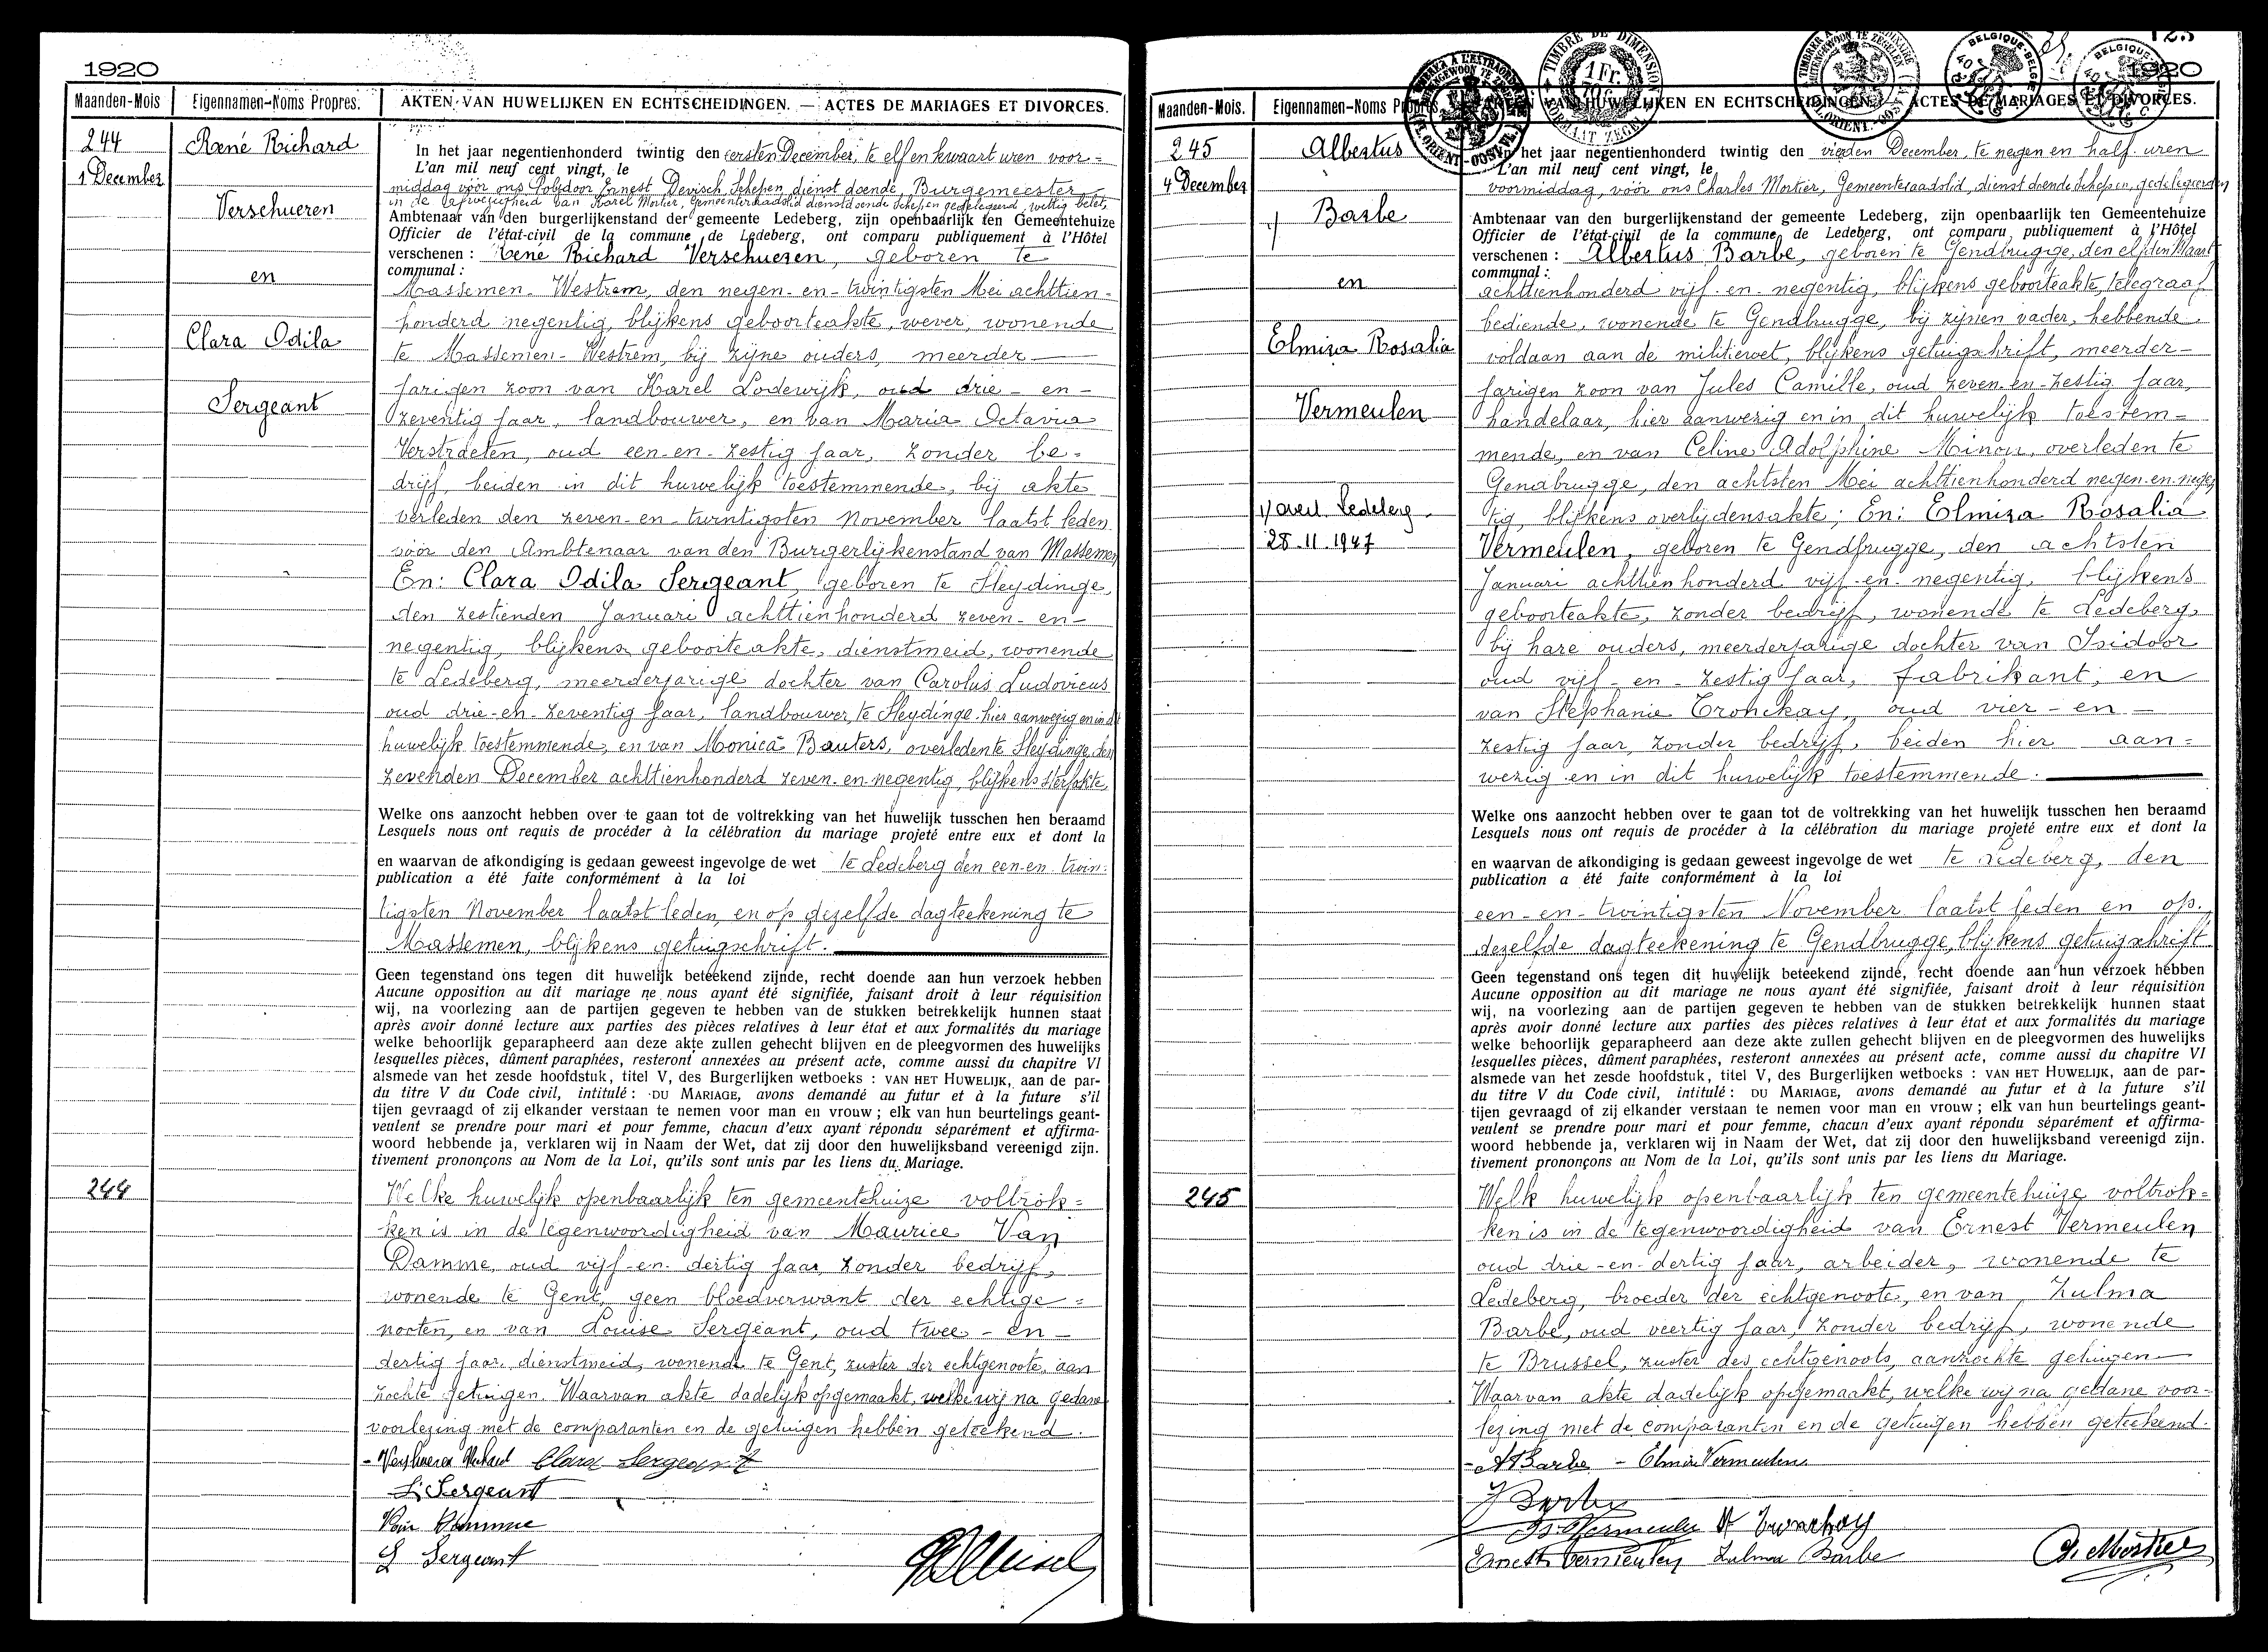 1920
Maanden-Mois
Eigennamen-Noms Propres.
AKTEN VAN HUWELIJKEN EN ECHTSCHEIDINGEN. — ACTES DE MARIAGES ET DIVORCES.
244
1 December
René Richard
Verschueren
en
Clara Odila
Sergeant
In het jaar negentienhonderd twintig den eersten December, te elf en kwaart uren voor=
L'an mil neuf cent vingt, le
middag voor ons Polydoor Ernest Devisch, Schepen, dienst doende Burgemeester
in de afwezigheid van Karel Mortier, Gemeenteraadslid dienstdoende Schepen gedelegeerd, wettig belet,
Ambtenaar van den burgerlijkenstand der gemeente Ledeberg, zijn openbaarlijk ten Gemeentehuize
Officier de l'état-civil de la commune de Ledeberg, ont comparu publiquement à l'Hôtel
verschenen : René Richard Verschueren, geboren te
communal :
Massemen-Westrem, den negen-en-twintigsten Mei achttien-
honderd negentig, blijkens geboorteakte, wever, wonende
te Massemen-Westrem, bij zijne ouders, meerder-
jarigen zoon van Karel Lodewijk, oud drie-en-
zeventig jaar, landbouwer, en van Maria Octavia
Verstraeten, oud een-en-zestig jaar, zonder be-
drijf, beiden in dit huwelijk toestemmende, bij akte
verleden den zeven-en-twintigsten November laatst leden
vóór den Ambtenaar van den Burgerlijkenstand van Massemen
En: Clara Odila Sergeant, geboren te Sleydinge,
den zestienden Januari achttienhonderd zeven-en-
negentig, blijkens geboorteakte, dienstmeid, wonende
te Ledeberg, meerderjarige dochter van Carolus Ludovicus
oud drie-en-zeventig jaar, landbouwer, te Sleydinge hier aanwezig en in dit
huwelijk toestemmende, en van Monica Bauters, overleden te Sleydinge, den
zevenden December achttienhonderd zeven-en-negentig, blijkens sterfakte,
Welke ons aanzocht hebben over te gaan tot de voltrekking van het huwelijk tusschen hen beraamd
Lesquels nous ont requis de procéder à la célébration du mariage projeté entre eux et dont la
en waarvan de afkondiging is gedaan geweest ingevolge de wet te Ledeberg den een-en-twin-
publication a été faite conformément à la loi
tigsten November laatst leden, en op dezelfde dagteekening te
Massemen, blijkens getuigschrift.
Geen tegenstand ons tegen dit huwelijk beteekend zijnde, recht doende aan hun verzoek hebben
Aucune opposition au dit mariage ne nous ayant été signifiée, faisant droit à leur réquisition
wij, na voorlezing aan de partijen gegeven te hebben van de stukken betrekkelijk hunnen staat
après avoir donné lecture aux parties des pièces relatives à leur état et aux formalités du mariage
welke behoorlijk geparapheerd aan deze akte zullen gehecht blijven en de pleegvormen des huwelijks
lesquelles pièces, dûment paraphées, resteront annexées au présent acte, comme aussi du chapitre VI
alsmede van het zesde hoofdstuk, titel V, des Burgerlijken wetboeks : VAN HET HUWELIJK, aan de par-
du titre V du Code civil, intitulé : DU MARIAGE, avons demandé au futur et à la future s'il
tijen gevraagd of zij elkander verstaan te nemen voor man en vrouw ; elk van hun beurtelings geant-
veulent se prendre pour mari et pour femme, chacun d'eux ayant répondu séparément et affirma-
woord hebbende ja, verklaren wij in Naam der Wet, dat zij door den huwelijksband vereenigd zijn.
tivement prononçons au Nom de la Loi, qu'ils sont unis par les liens du Mariage.
244
Welke huwelijk openbaarlijk ten gemeentehuize voltrok=
ken is in de tegenwoordigheid van Maurice Van
Damme, oud vijf-en-dertig jaar, zonder bedrijf,
wonende te Gent, geen bloedverwant der echtge=
nooten, en van Louise Sergeant, oud twee-en-
dertig jaar, dienstmeid, wonende te Gent, zuster der echtgenoote, aan
zochte getuigen. Waarvan akte dadelijk opgemaakt, welke wij na gedane
voorlezing met de comparanten en de getuigen hebben geteekend.
- Verschueren Richard Clara Sergeant
L Sergeant
Van Damme
L Sergeant
1920
Maanden-Mois.
Eigennamen-Noms Propres.
AKTEN VAN HUWELIJKEN EN ECHTSCHEIDINGEN. — ACTES DE MARIAGES ET DIVORCES.
TIMBRE DE DIMENSION
1 Fr.
FORMAAT ZEGEL
BELGIQUE-BELGIE
40
BELGIQUE
40
245
4 December
Albertus
Barbe
en
Elmira Rosalia
Vermeulen
1/ overl. Ledeberg
28.11.1947
In het jaar negentienhonderd twintig den vierden December, te negen en half uren
L'an mil neuf cent vingt, le
voormiddag, vóór ons Charles Mortier, Gemeenteraadslid, dienst doende Schepen, gedelegeerden
Ambtenaar van den burgerlijkenstand der gemeente Ledeberg, zijn openbaarlijk ten Gemeentehuize
Officier de l'état-civil de la commune de Ledeberg, ont comparu publiquement à l'Hôtel
verschenen : Albertus Barbe, geboren te Gendbrugge, den elfden Maart
communal :
achttienhonderd vijf-en-negentig, blijkens geboorteakte, telegraaf
bediende, wonende te Gendbrugge, bij zijnen vader, hebbende
voldaan aan de militiewet, blijkens getuigschrift, meerder-
jarigen zoon van Jules Camille, oud zeven-en-zestig jaar,
handelaar, hier aanwezig en in dit huwelijk toestem=
mende, en van Celine Adolphine Minou, overleden te
Gendbrugge, den achtsten Mei achttienhonderd negen-en-negen
tig, blijkens overlijdensakte; En: Elmira Rosalia
Vermeulen, geboren te Gendbrugge, den achtsten
Januari achttienhonderd vijf-en-negentig, blijkens
geboorteakte, zonder bedrijf, wonende te Ledeberg,
bij hare ouders, meerderjarige dochter van Isidoor
oud vijf-en-zestig jaar, fabrikant, en
van Stephanie Tronckay, oud vier-en-
zestig jaar, zonder bedrijf, beiden hier aan=
wezig en in dit huwelijk toestemmende.
Welke ons aanzocht hebben over te gaan tot de voltrekking van het huwelijk tusschen hen beraamd
Lesquels nous ont requis de procéder à la célébration du mariage projeté entre eux et dont la
en waarvan de afkondiging is gedaan geweest ingevolge de wet te Ledeberg, den
publication a été faite conformément à la loi
een-en-twintigsten November laatst leden en op
dezelfde dagteekening te Gendbrugge, blijkens getuigschrift.
Geen tegenstand ons tegen dit huwelijk beteekend zijnde, recht doende aan hun verzoek hebben
Aucune opposition au dit mariage ne nous ayant été signifiée, faisant droit à leur réquisition
wij, na voorlezing aan de partijen gegeven te hebben van de stukken betrekkelijk hunnen staat
après avoir donné lecture aux parties des pièces relatives à leur état et aux formalités du mariage
welke behoorlijk geparapheerd aan deze akte zullen gehecht blijven en de pleegvormen des huwelijks
lesquelles pièces, dûment paraphées, resteront annexées au présent acte, comme aussi du chapitre VI
alsmede van het zesde hoofdstuk, titel V, des Burgerlijken wetboeks : VAN HET HUWELIJK, aan de par-
du titre V du Code civil, intitulé : DU MARIAGE, avons demandé au futur et à la future s'il
tijen gevraagd of zij elkander verstaan te nemen voor man en vrouw ; elk van hun beurtelings geant-
veulent se prendre pour mari et pour femme, chacun d'eux ayant répondu séparément et affirma-
woord hebbende ja, verklaren wij in Naam der Wet, dat zij door den huwelijksband vereenigd zijn.
tivement prononçons au Nom de la Loi, qu'ils sont unis par les liens du Mariage.
245
Welk huwelijk openbaarlijk ten gemeentehuize voltrok=
ken is in de tegenwoordigheid van Ernest Vermeulen
oud drie-en-dertig jaar, arbeider, wonende te
Ledeberg, broeder der echtgenoote, en van Zulma
Barbe, oud veertig jaar, zonder bedrijf, wonende
te Brussel, zuster des echtgenoots, aanzochte getuigen
Waarvan akte dadelijk opgemaakt, welke wij na gedane voor-
lezing met de comparanten en de getuigen hebben geteekend.
- A Barbe - Elmire Vermeulen
J Barbe
Is Vermeulen St Tronckay
Ernest Vermeulen Zulma Barbe
Ch. Mortier